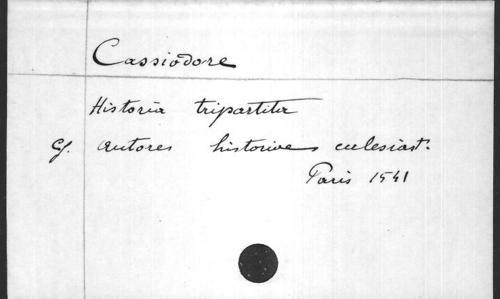 Cassiodore
Historia tripartita
Cf. Autores historiae eclesiast.
Paris 1541